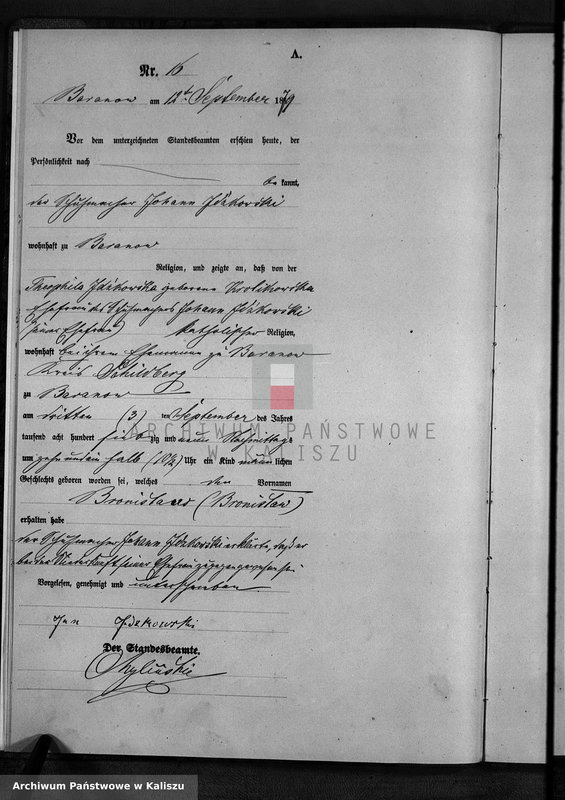 A.
Nr. 16
Baranow am 12t September 1879
Vor dem unterzeichneten Standesbeamten erschien heute, der
Persönlichkeit nach
be kannt,
der Schuhmacher Johann Idzikowski
wohnhaft zu Baranow
Religion, und zeigte an, daß von der
Theophila geborene
Ehefrau des Schuhmachers Johann
seiner Ehefrau katholischer Religion,
wohnhaft bei ihrem Ehemanne zu Baranow
Kreis Schildberg
zu Baranow
am dritten (3) ten September des Jahres
tausend acht hundert sieb zig und neun Nachmittags
um zehn und ein halb (10½) Uhr ein Kind männ lichen
Geschlechts geboren worden sei, welches den Vornamen
Bronislaus (Bronislaw)
erhalten habe
der Schuhmacher Johann erklärte, daß er
bei der Niederkunft seiner Ehefrau zugegen gewesen sei
Vorgelesen, genehmigt und unterschrieben
Jan
Der Standesbeamte.
ARCHIWUM PAŃSTWOWE
W KALISZU
Archiwum Państwowe w Kaliszu